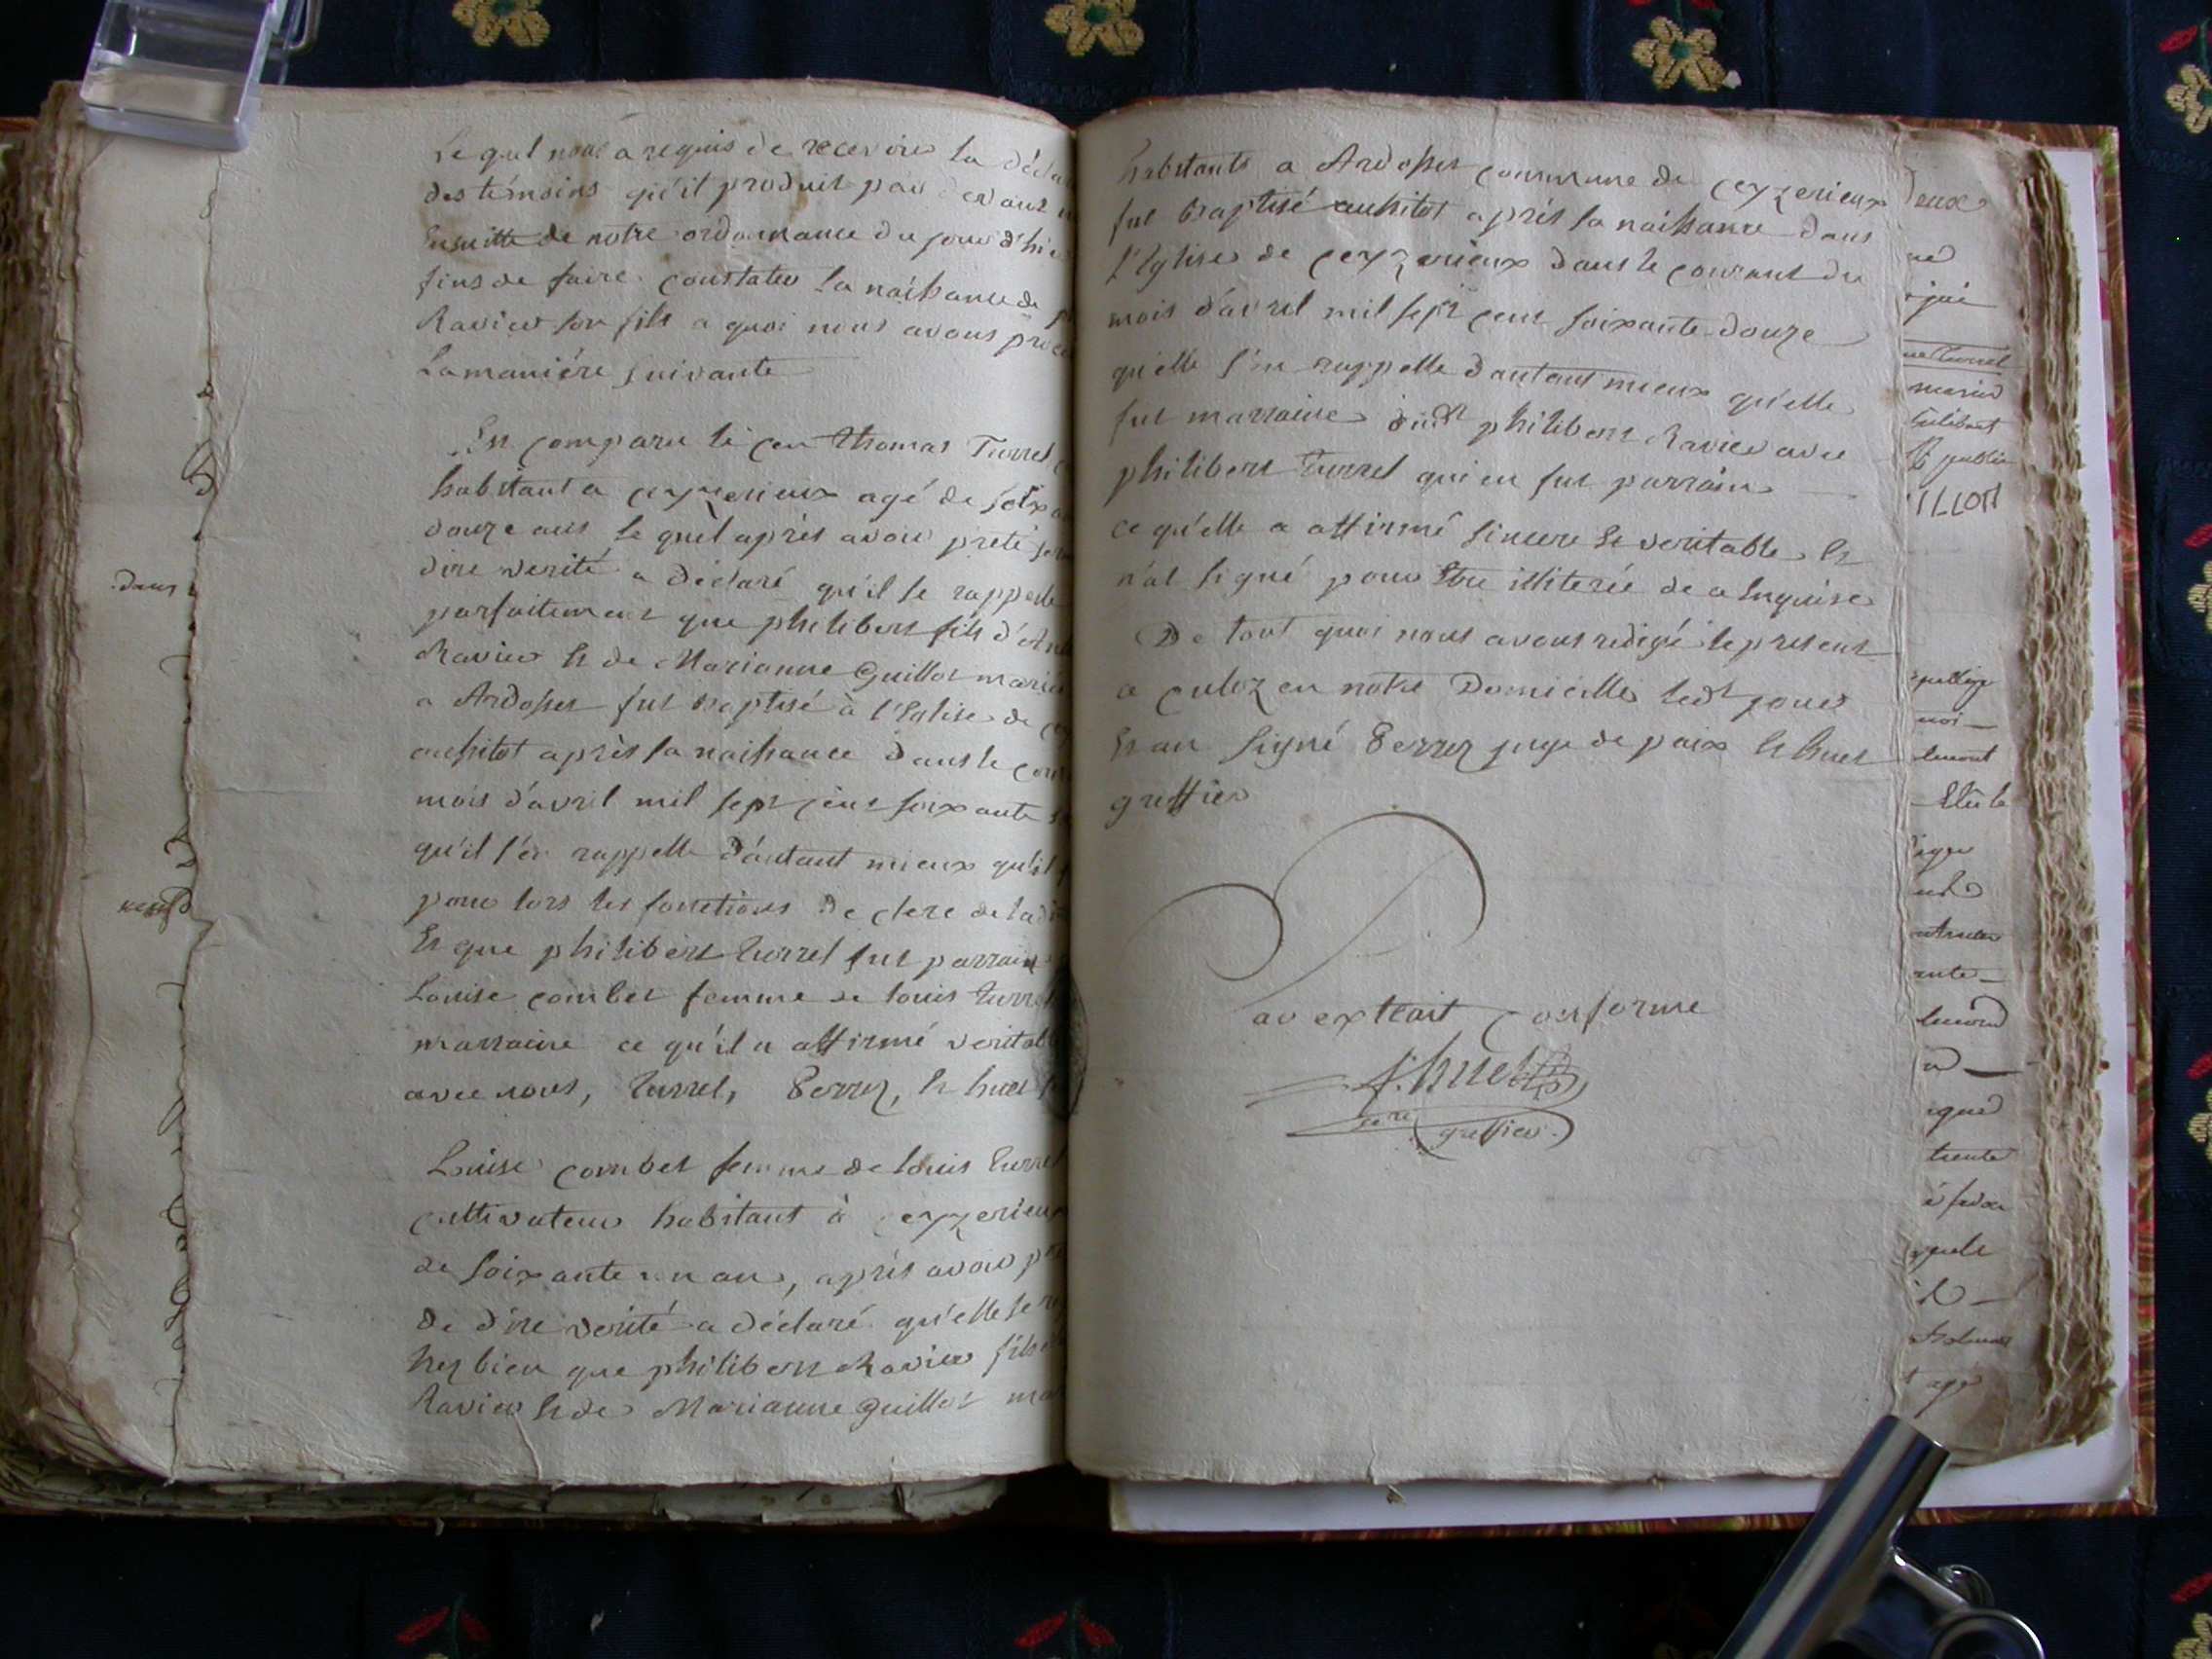 Lequel nous a requis de recevoir la décla
des témoins qu'il produit par devant n
Ensuitte de notre ordonnance du jour d'hier
fins de faire constater la naissance de
Ravier son fils a quoi nous avons procé
La maniére suivante
Est comparu le cen thomas Turrel
habitant a ceyzerieux agé de soixa
douze ans le quel après avoir prété ser
dire verité a déclaré qu'il se rappelle
parfaitement que philibert fils d'Ant
Ravier et de Marianne Guillot mariés
a Ardosset fut baptisé à l'Eglise de cey
aussitot après sa naissance dans le cour
mois d'avril mil sept cent soixante
qu'il s'en rappelle d'autant mieux qu'il
pour lors les fonctions de clerc de lad
Et que philibert turrel fut parrain
Louise combet femme de louis turrel
marraine ce qu'il a affirmé veritable
avec nous, turrel, Perrez, et huet
Louise combet femme de louis turrel
cultivateur habitant à ceyzerieux
de soixante un an, après avoir p
de dire verité a déclaré qu'elle se
trez bien que philibert Ravier fils
Ravier et de Marianne guillot ma
dans
habitants a Ardosset commune de ceyzerieux
fut baptisé aussitot après sa naissance dans
l'Eglise de ceyzerieux dans le courant du
mois d'avril mil sept cent soixante douze
qu'elle s'en rappelle dautant mieux qu'elle
fut marraine dudt philibert Ravier avec
philibert turrel qui en fut parrain
ce qu'elle a affirmé sincere et veritable et
n'at signé pour être illiterée de ce Enquise
De tout quoi nous avons redigé le present
a culoz en notre Domicille ledt jour
Et an signé Perrez juge de paix et huet
greffier
par extrait conforme
J. huet
greffier